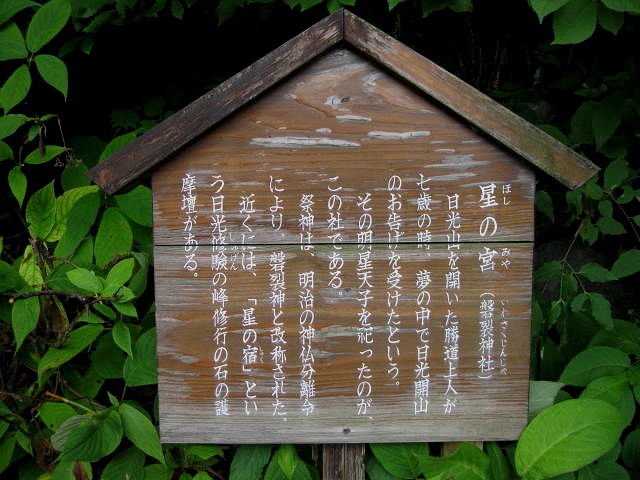 星の宮（磐裂神社）
ほし　みや　いわさくじんじゃ
日光山を開いた勝道上人が
七歳の時、夢の中で日光開山
のお告げを受けたという。
その明星天子を祀ったのが、
この社である
祭神は、明治の神仏分離令
により　磐裂神と改称された。
近くには、「星の宿」とい
う日光修験の峰修行の石の護
しゅげん
摩壇がある。